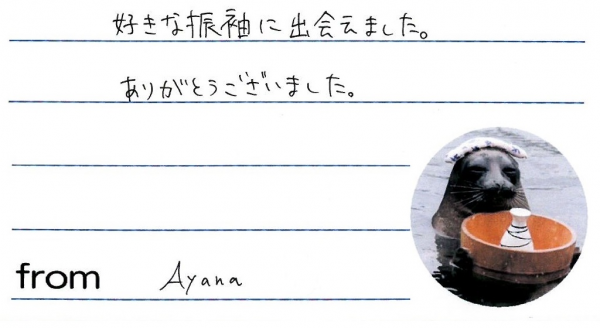 好きな振袖に出会えました。
ありがとうございました。
from Ayana